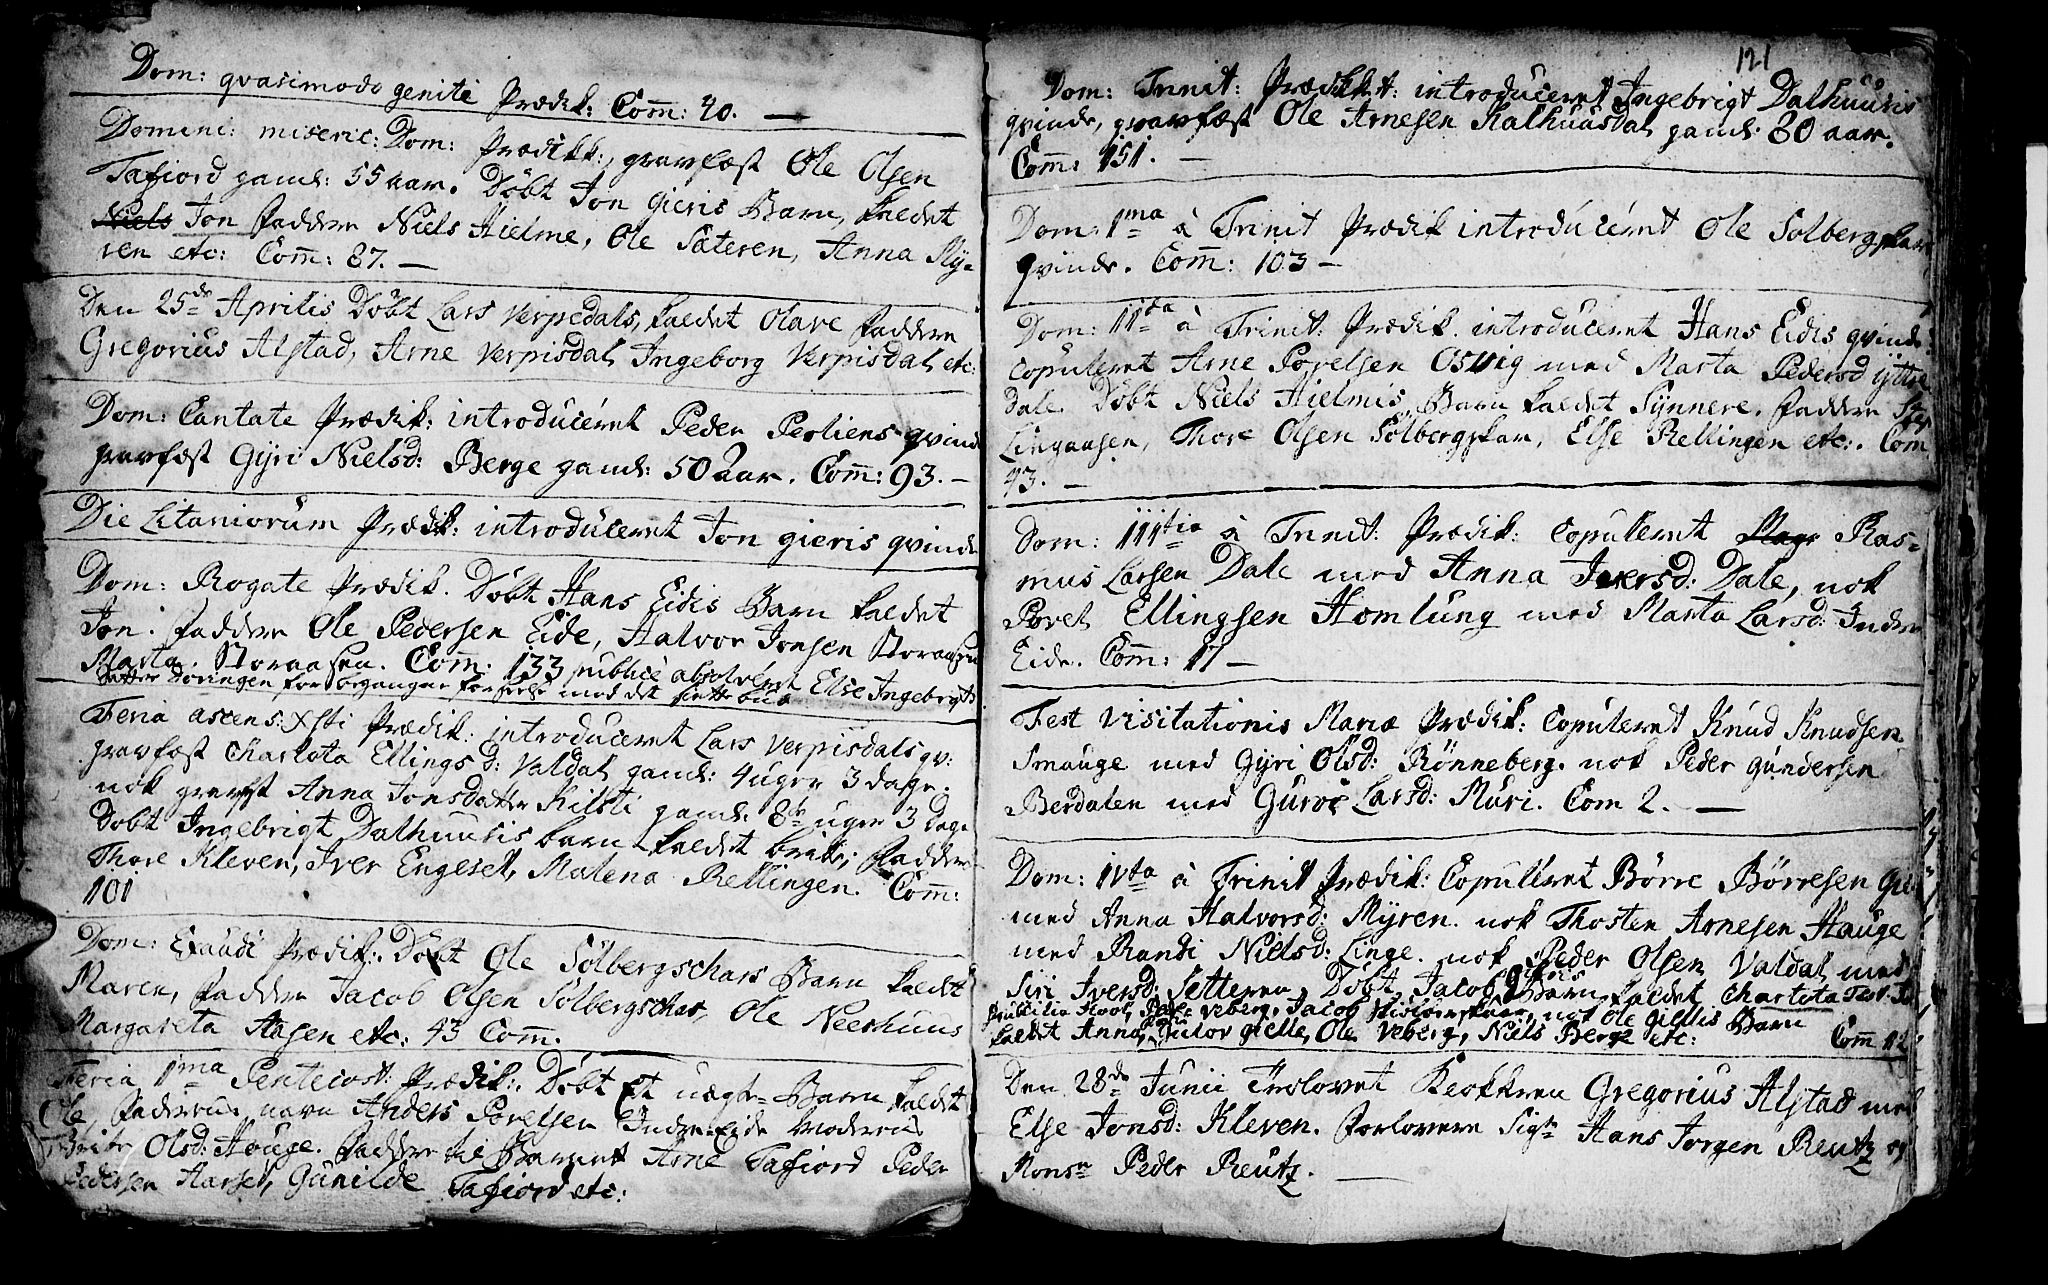 Dom: qvasimodo geniti Prædik: Com̄: 40. —
Domini: miseric: Dom: Prædikk:, gravfæst Ole Olsen
Tafiord gaml: 55 aar. Döbt Jon Gieris Barn, kaldet
Niels Jon faddere Niels Hielme, Ole Säteren, Anna Mÿ-
ren etc: Com̄: 87. —
Den 25de Aprilis Döbt Lars Verpedals, kaldet Olave faddere
Gregorius Alstad, Arne Verpisdal, Ingeborg Verpisdal etc:
Dom: Cantate Prædik: introduceret Peder Perliens qvinde
gravfæst Gÿri Nielsd: Berge gaml: 50 aar. Com̄: 93. —
Die Litaniorum Prædik: introduceret Jon gieris qvinde
Dom: Rogate Prædik. Döbt Hans Eidis Barn kaldet
Jon. faddere Ole Pedersen Eide, Halvor Jonsen Storaasen
Marta Storaasen. Com̄. 133 publicè absolveret Else Ingebrigts
datter Döringen for begangne forseelse med det siette bud
Feria ascens: Xsti Prædik: introduceret Lars Verpisdals qv:
gravfæst Charlota Ellings d: Valdal gaml: 4 uger 3 dage.
nok gravfst Anna Jonsdatter Kilsti gaml: 8te uger 3 dage
Döbt Ingebrigt Dalhuusis barn kaldet brite, faddere
Thore Kleven, Iver Engeset, Malena Rellingen. Com̄:
101
Dom: Exaudi Prædik: Döbt Ole Sölbergschars Barn kaldet
Maren, faddere Jacob Olsen Sölbergschar, Ole Neerhuus
Margareta Aasen etc: 43 Com̄.
Feria 1ma Pentecost: Prædik: Döbt et uægte Barn kaldet
Ole faderens navn Anders Povelsen Indre Eide moderens
Brite Olsd: Houge. faddere til Barnet Arne Tafiord Peder
Pedersen Harset, Gunilde Tafiord etc:
121
Dom: Trinit: Prædikkt: introduceret Ingebrigt Dalhuusis
qvinde, gravfæst Ole Arnesen Kalhuusdal gaml: 80 aar.
Com̄: 151. —
Dom: 1ma à Trinit Prædik introduceret Ole Solbergskars
qvinde. Com̄: 103 —
Dom: IIda à Trinit: Prædik. introduceret Hans Eidis qvinde
copuleret Arne Povelsen Osvig med Marta Pedersd ÿttre
Dale. Döbt Niels Hielmis Barn kaldet Sÿnnere. faddere
Lingaasen, Thore Olsen Solbergskar, Else Rellingen etc:. Com
43. —
Dom: IIItia à Trinit: Prædik: Copuleret Ras-
mus Larsen Dale med Anna Iversd: Dale, nok
Povel Ellingsen Homlung med Marta Larsd: Indre
Eide. Com̄: 17 —
Fest Visitationis Mariæ Prædik: Copuleret Knud Knudsen
Smauge med Gÿri Olsd: Rönneberg. nok Peder Gundersen
Berdalen med Guroe Larsd: Muri. Com 2. —
Dom: IVta à Trinit Prædik: Copuleret Börre Börresen
med Anna Halvorsd: Mÿren. nok Thosten Arnesen Hauge
med Randi Nielsd: Linge. nok Peder Olsen Valdal med
Siri Iversd: Setteren. Döbt Jacob Barn kaldet Charlota
Veberg, Jacob nok Ole Giellis Barn
kaldet Anna, Gielle, Ole Veberg, Niels Berge etc: Com̄ 12
Den 28de Junii Trolovet Klokkeren Gregorius Alstad med
Else Jonsd: Kleven. Forlovere Sigr Hans Jorgen Reutz og
Monsr Peder Reutz. —